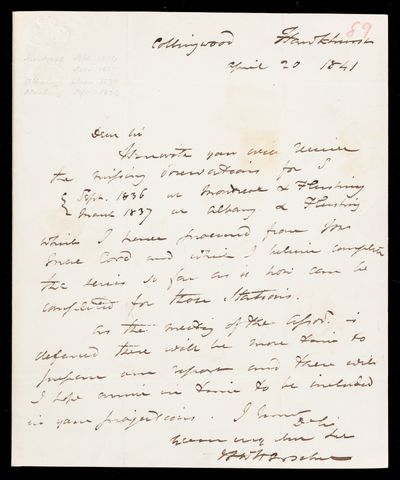 89
Collingwood Hawkhurst
April 20 1841
Dear Sir
Herewith you will receive
the missing observations for
Sept. 1836 at Montreal & Flushing
March 1837 at Albany & Flushing
which I have procured from
and which I believe complete
the series so far as is now can be
completed for those Stations.
As the meeting of the Assocn. is
deferred there will be more time to
prepare our report and there will
I hope arrive in time to be included
in your projections. I
Dr Sir
yours very
JFW Herschel